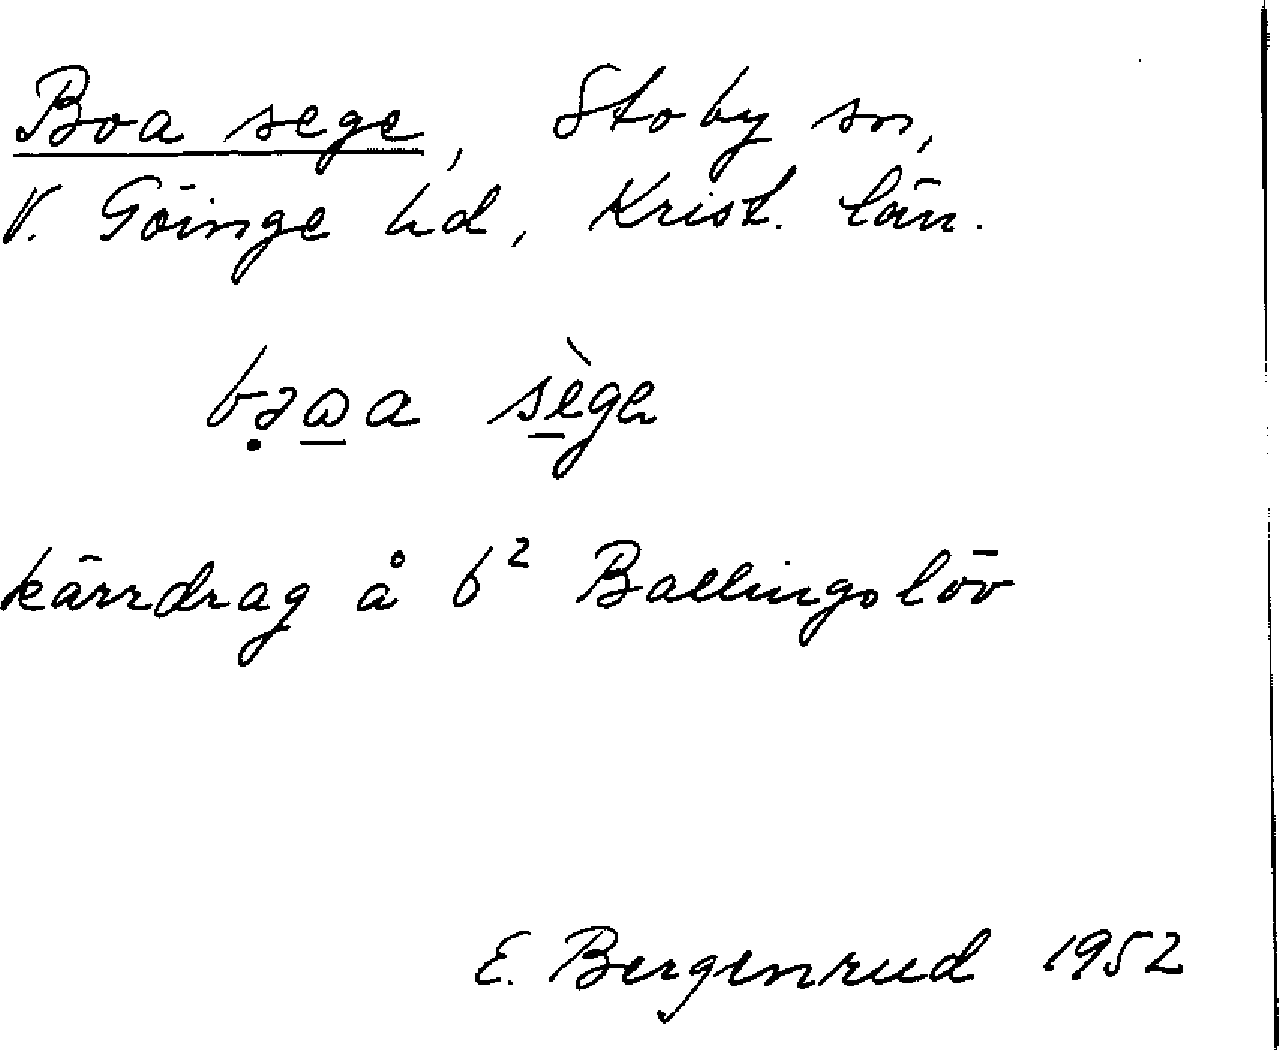 Boa sege, Stoby sn,
V. Göinge hd, Krist. län.
bə̣ɷ̲a sè̲gə
kärrdrag å 6² Ballingslöv
E. Bergenrud 1952